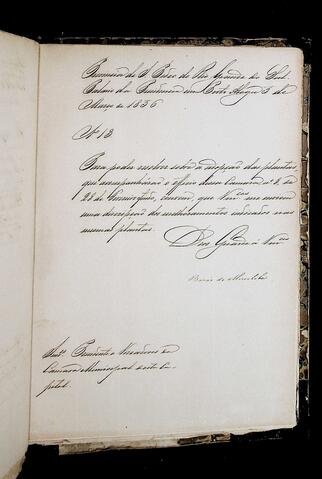 Provincia de S. Pedro do Rio Grande do Sul.
Palacio da Presidencia em Porto Alegre 3 de
Março de 1856
Nº 13
Para poder resolver sobre a adopção das plantas,
que acompanharão o officio dessa Camara nº 8 de
28 de, convem, que Vmces me enviem
uma descripção de melhoramentos indicados nas
mesmas plantas.
Deos Guarde a Vmces
Barão de Muritiba
Snrs. Presidente e Vereadores da
Camara Municipal desta Ca-
pital.